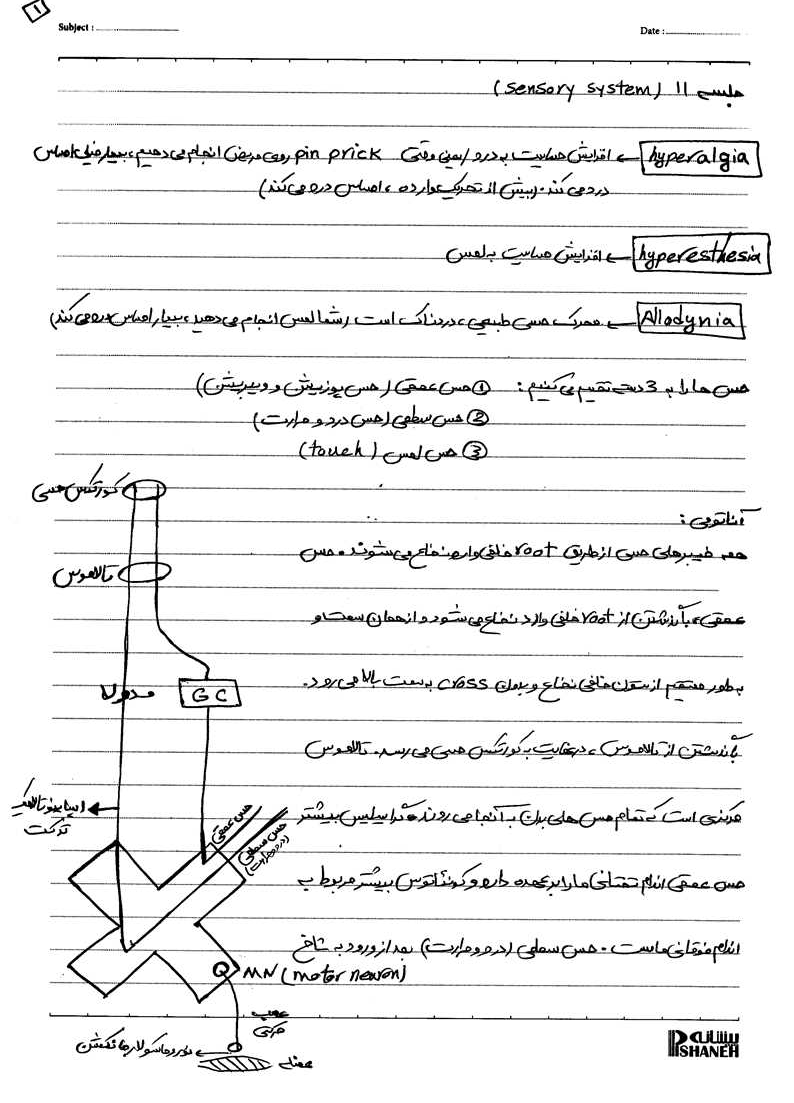 1
Subject :
Date :
جلسه 11 (sensory system)
hyperalgia ← افزایش حساسیت به درد (یعنی وقتی pin prick روی مریض انجام می دهیم، بیمار خیلی احساس
درد می کند. (بیش از تحریک وارده، احساس درد می کند)
hyperesthesia ← افزایش حساسیت به لمس
Allodynia ← محرک حسی طبیعی، دردناک است (شما لمس انجام می دهید، بیمار احساس درد می کند)
حس ها را به 3 دسته تقسیم می کنیم: ① حس عمقی (حس پوزیشن و ویبریشن)
② حس سطحی (حس درد و حرارت)
③ حس لمس (touch)
کورتکس حسی
آناتومی:
همه فیبرهای حسی از طریق root خلفی وارد نخاع می شوند. حس
تالاموس
عمقی، با گذشتن از root خلفی وارد نخاع می شود و از همان سمت و
به طور مستقیم از ستون خلفی نخاع و بدون cross به سمت بالا می رود.
مدولا
GC
با گذشتن از تالاموس، در نهایت به کورتکس حسی می رسد. تالاموس
اسپاینوتالامیک
ترکت
مرکزی است که تمام حس های بدن به آنجا می روند. گراسیلیس بیشتر
حس عمقی
حس سطحی
(درد و حرارت)
حس عمقی اندام تحتانی ما را بر عهده دارد و کونئاتوس بیشتر مربوط به
اندام فوقانی ماست. حس سطحی (درد و حرارت) بعد از ورود به شاخ
MN (motor neuron)
عصب
حرکتی
نوروماسکولار جانکشن
عضله
پیشانه
PISHANEH